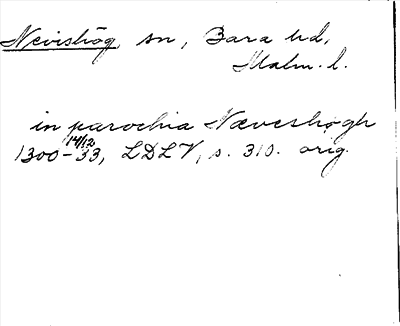 Nevishög, sn, Bara hd,
Malm. l.
in parochia Næveshøgh
14/12
1300-33, LDLV, s. 310. orig.